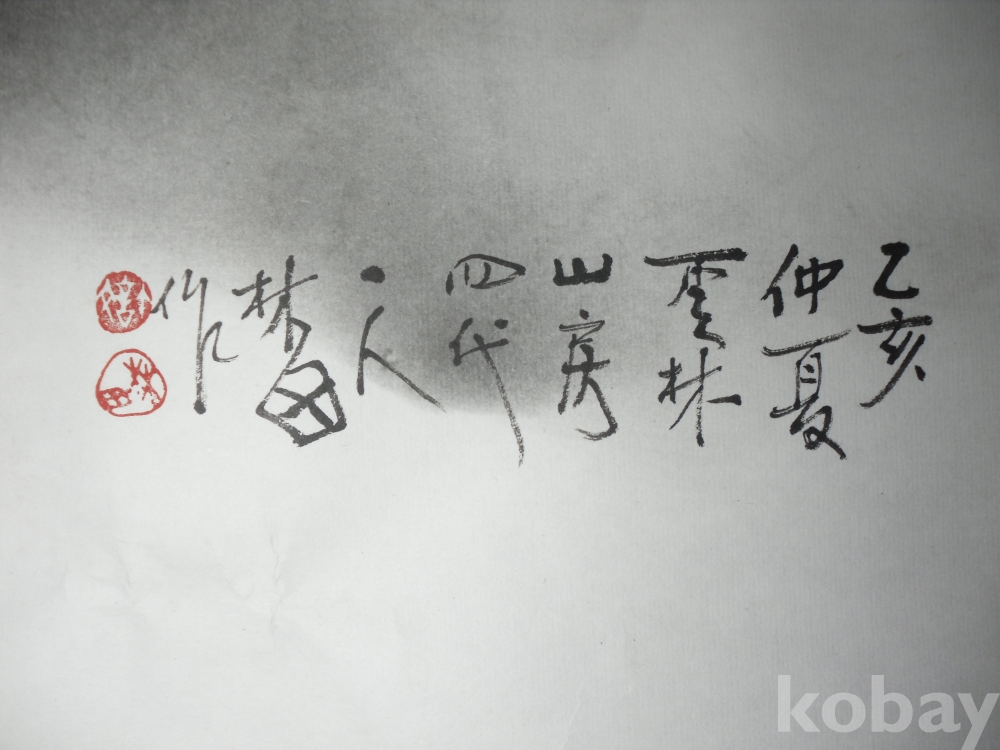 乙亥
仲夏
雲林
山房
四代
人
林田
作
kobay